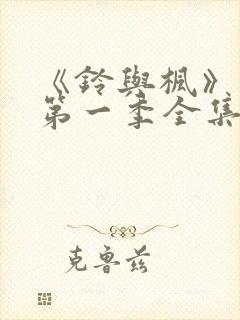 《鈴與楓》
第一季全集
克魯茲